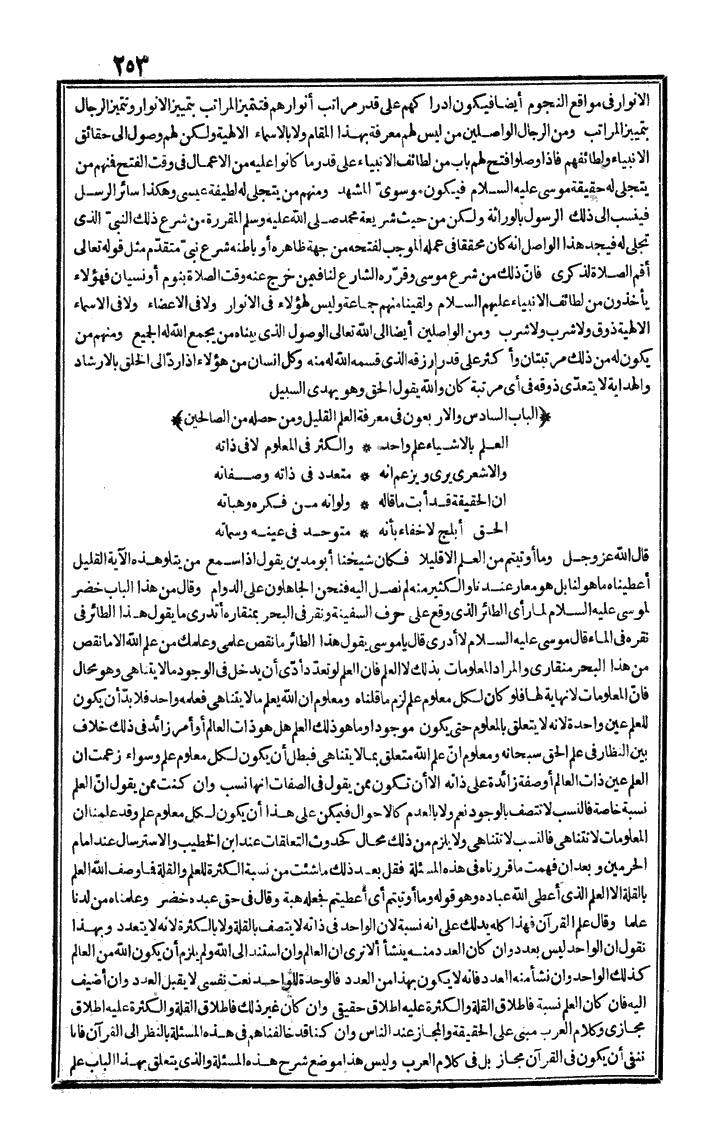 ٢٥٣
الانوار فى مواقع النجوم أيضا فيكون ادراكهم على قدر مراتب أنوارهم فتتميز المراتب بتمييز الانوار وتتميز الرجال
بتمييز المراتب ومن الرجال الواصلين من ليس لهم معرفة بهذا المقام ولا بالاسماء الالهية ولكن لهم وصول الى حقائق
الانبياء ولطائفهم فاذا وصلوا فتح لهم باب من لطائف الانبياء على قدر ما كانوا عليه من الاعمال فى وقت الفتح فمنهم من
يتجلى له حقيقة موسى عليه السلام فيكون موسوىّ المشهد ومنهم من يتجلى له لطيفة عيسى وهكذا سائر الرسل
فينسب الى ذلك الرسول بالوراثة ولكن من حيث شريعة محمد صلى الله عليه وسلم المقررة من شرع ذلك النبىّ الذى
تجلى له فيجد هذا الواصل انه كان محققا فى عمله الموجب لفتحه من جهة ظاهره أو باطنه شرع نبىّ متقدّم مثل قوله تعالى
أقم الصلاة لذكرى فانّ ذلك من شرع موسى وقرّره الشارع لنا فيمن خرج عنه وقت الصلاة بنوم أو نسيان فهؤلاء
يأخذون من لطائف الانبياء عليهم السلام ولقينا منهم جماعة وليس لهؤلاء فى الانوار ولا فى الاعضاء ولا فى الاسماء
الالهية ذوق ولا شرب ولا شرب ومن الواصلين أيضا الى الله تعالى الوصول الذى بيناه من يجمع الله له الجميع ومنهم من
يكون له من ذلك مرتبتان وأكثر على قدر رزقه الذى قسمه الله له منه وكل انسان من هؤلاء اذا ردّ الى الخلق بالارشاد
والهداية لا يتعدّى ذوقه فى أى مرتبة كان والله يقول الحق وهو يهدى السبيل
﴿الباب السادس والاربعون فى معرفة العلم القليل ومن حصله من الصالحين﴾
العلم بالاشياء علم واحد * والكثر فى المعلوم لا فى ذاته
والاشعرى يرى ويزعم انه * متعدد فى ذاته وصفاته
ان الحقيقة قد أبت ما قاله * ولوانه من فكره وهباته
الحق أبلج لا خفاء بأنه * متوحد فى عينه وسماته
قال الله عز وجل وما أوتيتم من العلم الا قليلا فكان شيخنا أبو مدين يقول اذا سمع من يتلو هذه الآية القليل
أعطيناه ما هو لنا بل هو معار عندنا والكثير منه لم نصل اليه فنحن الجاهلون على الدوام وقال من هذا الباب خضر
لموسى عليه السلام لما رأى الطائر الذى وقع على حرف السفينة ونقر فى البحر بمنقاره أتدرى ما يقول هذا الطائر فى
نقره فى الماء قال موسى عليه السلام لا أدرى قال ياموسى يقول هذا الطائر ما نقص علمى وعلمك من علم الله الا ما نقص
من هذا البحر منقارى والمراد المعلومات بذلك لا العلم فان العلم لو تعدّد أدّى أن يدخل فى الوجود ما لا يتناهى وهو محال
فانّ المعلومات لا نهاية لها فلو كان لكل معلوم علم لزم ما قلناه ومعلوم ان الله يعلم ما لا يتناهى فعلمه واحد فلا بدّ أن يكون
للعلم عين واحدة لانه لا يتعلق بالمعلوم حتى يكون موجودا وما هو ذلك العلم هل هو ذات العالم أو أمر زائد فى ذلك خلاف
بين النظار فى علم الحق سبحانه ومعلوم انّ علم الله متعلق بما لا يتناهى فبطل أن يكون لكل معلوم علم وسواء زعمت ان
العلم عين ذات العالم أو صفة زائدة على ذاته الا أن تكون ممن يقول فى الصفات انها نسب وان كنت ممن يقول انّ العلم
نسبة خاصة فالنسب لا تتصف بالوجود نعم ولا بالعدم كالاحوال فيمكن على هذا أن يكون لكل معلوم علم وقد علمنا ان
المعلومات لا تتناهى فالنسب لا تتناهى ولا يلزم من ذلك محال كحدوث التعلقات عند ابن الخطيب والاسترسال عند امام
الحرمين وبعد ان فهمت ما قررناه فى هذه المسئلة فقل بعد ذلك ما شئت من نسبة الكثرة للعلم والقلة فما وصف الله العلم
بالقلة الا العلم الذى أعطى الله عباده وهو قوله وما أوتيتم أى أعطيتم فجعله هبة وقال فى حق عبده خضر وعلمناه من لدنا
علما وقال علم القرآن فهذا كله يدلك على انه نسبة لان الواحد فى ذاته لا يتصف بالقلة ولا بالكثرة لانه لا يتعدد وبهذا
نقول ان الواحد ليس بعدد وان كان العدد منه ينشأ ألا ترى ان العالم وان استند الى الله ولم يلزم أن يكون الله من العالم
كذلك الواحد وان نشأ منه العدد فانه لا يكون بهذا من العدد فالوحدة للواحد نعت نفسى لا يقبل العدد وان أضيف
اليه فان كان العلم نسبة فاطلاق القلة والكثرة عليه اطلاق حقيقى وان كان غير ذلك فاطلاق القلة والكثرة عليه اطلاق
مجازى وكلام العرب مبنى على الحقيقة والمجاز عند الناس وان كنا قد خالفناهم فى هذه المسئلة بالنظر الى القرآن فانا
ننفى أن يكون فى القرآن مجاز بل فى كلام العرب وليس هذا موضع شرح هذه المسئلة والذى يتعلق بهذا الباب علم